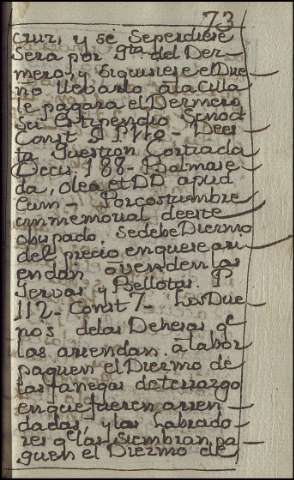 73
cruz, y se Seperdiese
Sera por qta del Der-
mero, y siquisiese el Due
ño llebarlo a la Cilla
le pagara el Dermero
su estipendio Synod
Const P 110 - Deci
ta Question Cortiada
Decis. 188 - Balmase
da, olea, et DD apud
eum - Por costumbre
inmemorial deeste
obispado, sedebe Diezmo
del precio enquese arr
iendan o venden las
Yervas, y Bellotas. P
112 - Const 7 - Los Due
ños delas Dehesas qe
las arriendan a labor
paguen el Diezmo de
las fanegas de terrazgo
enque fueren arren
dadas, y los Labrado
res qe las siembran pa
guen el Diezmo de